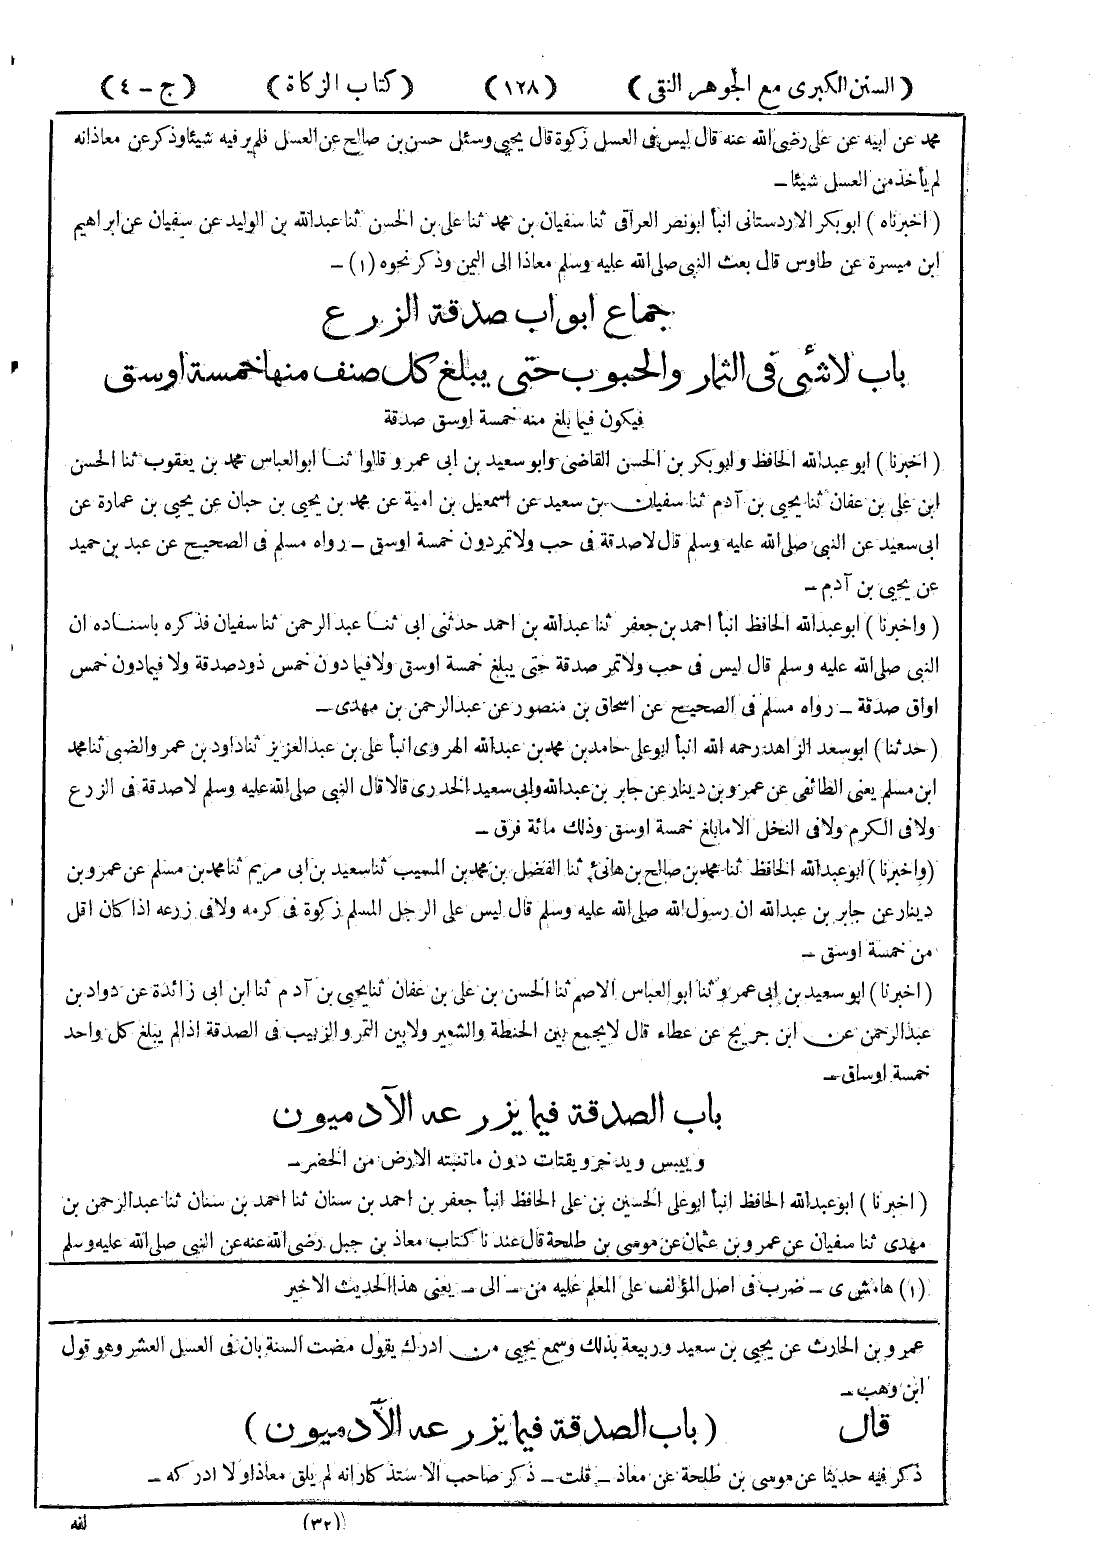 (السنن الكبرى مع الجوهر النقى) (١٢٨) (كتاب الزكاة) (ج - ٤)
محمد عن ابيه عن على رضى الله عنه قال ليس فى العسل زكوة قال يحيى وسئل حسن بن صالح عن العسل فلم ير فيه شيئا وذكر عن معاذ انه
لم يأخذ من العسل شيئا -
(اخبرناه) ابو بكر الاردستانى انبأ ابو نصر العراقى ثنا سفيان بن محمد ثنا على بن الحسن ثنا عبدالله بن الوليد عن سفيان عن ابراهيم
ابن ميسرة عن طاوس قال بعث النبى صلى الله عليه وسلم معاذا الى اليمن وذكر نحوه (١) -
جماع ابواب صدقة الزرع
باب لا شئ فى الثمار والحبوب حتى يبلغ كل صنف منها خمسة اوسق
فيكون فيما بلغ منه خمسة اوسق صدقة
(اخبرنا) ابو عبدالله الحافظ وابو بكر بن الحسن القاضى وابو سعيد بن ابى عمرو قالوا ثنا ابو العباس محمد بن يعقوب ثنا الحسن
ابن على بن عفان ثنا يحيى بن آدم ثنا سفيان بن سعيد عن اسمعيل بن امية عن محمد بن يحيى بن حبان عن يحيى بن عمارة عن
ابى سعيد عن النبى صلى الله عليه وسلم قال لا صدقة فى حب ولا تمر دون خمسة اوسق - رواه مسلم فى الصحيح عن عبد بن حميد
عن يحيى بن آدم -
(واخبرنا) ابو عبدالله الحافظ انبأ احمد بن جعفر ثنا عبدالله بن احمد حدثنى ابى ثنا عبد الرحمن ثنا سفيان فذكره باسناده ان
النبى صلى الله عليه وسلم قال ليس فى حب ولا تمر صدقة حتى يبلغ خمسة اوسق ولا فيما دون خمس ذود صدقة ولا فيما دون خمس
اواق صدقة - رواه مسلم فى الصحيح عن اسحاق بن منصور عن عبد الرحمن بن مهدى -
(حدثنا) ابو سعد الزاهد رحمه الله انبأ ابو على حامد بن محمد بن عبدالله الهروى انبأ على بن عبد العزيز ثنا داود بن عمرو الضبى ثنا محمد
ابن مسلم يعنى الطائفى عن عمرو بن دينار عن جابر بن عبدالله وابى سعيد الخدرى قالا قال النبى صلى الله عليه وسلم لا صدقة فى الزرع
ولا فى الكرم ولا فى النخل الا ما بلغ خمسة اوسق وذلك مائة فرق -
(واخبرنا) ابو عبدالله الحافظ ثنا محمد بن صالح بن هانئ ثنا الفضل بن محمد بن المسيب ثنا سعيد بن ابى مريم ثنا محمد بن مسلم عن عمرو بن
دينار عن جابر بن عبدالله ان رسول الله صلى الله عليه وسلم قال ليس على الرجل المسلم زكوة فى كرمه ولا فى زرعه اذا كان اقل
من خمسة اوسق -
(اخبرنا) ابو سعيد بن ابى عمرو ثنا ابو العباس الاصم ثنا الحسن بن على بن عفان ثنا يحيى بن آدم ثنا ابن ابى زائدة عن دواد بن
عبد الرحمن عن ابن جريج عن عطاء قال لا يجمع بين الحنطة والشعير ولا بين التمر والزبيب فى الصدقة اذا لم يبلغ كل واحد
خمسة اوساق -
باب الصدقة فيما يزرعه الآدميون
وييبس ويدخر ويقتات دون ما تنبته الارض من الخضر -
(اخبرنا) ابو عبدالله الحافظ انبأ ابو على الحسين بن على الحافظ انبأ جعفر بن احمد بن سنان ثنا احمد بن سنان ثنا عبد الرحمن بن
مهدى ثنا سفيان عن عمرو بن عثمان عن موسى بن طلحة قال عندنا كتاب معاذ بن جبل رضى الله عنه عن النبى صلى الله عليه وسلم
(١) هامش ى - ضرب فى اصل المؤلف على المعلم عليه من - الى - يعنى هذا الحديث الاخير
عمرو بن الحارث عن يحيى بن سعيد وربيعة بذلك وسمع يحيى من ادرك يقول مضت السنة بان فى العسل العشر وهو قول
ابن وهب -
قال (باب الصدقة فيما يزرعه الآدميون)
ذكر فيه حديثا عن موسى بن طلحة عن معاذ - قلت - ذكر صاحب الاستذكار انه لم يلق معاذا ولا ادركه -
(٣٢) لفه